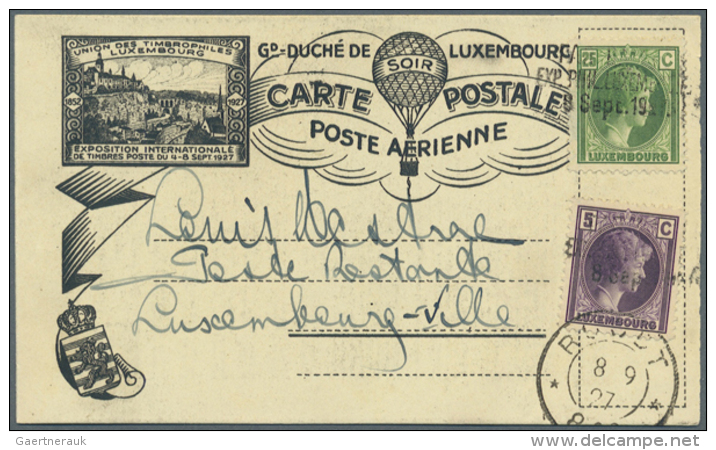 UNION DES TIMBROPHILES
LUXEMBOURG
1852 1927
EXPOSITION INTERNATIONALE
DE TIMBRES POSTE DU 4-8 SEPT 1927
GD-DUCHÉ DE LUXEMBOURG
SOIR
CARTE POSTALE
POSTE AÉRIENNE
25 C
LUXEMBOURG
8 Sept. 192
5 C
LUXEMBOURG
8 Sept
Louis
Poste Restante
Luxembourg-Ville
8 9
27
Gaertnerauk
delcampe.net